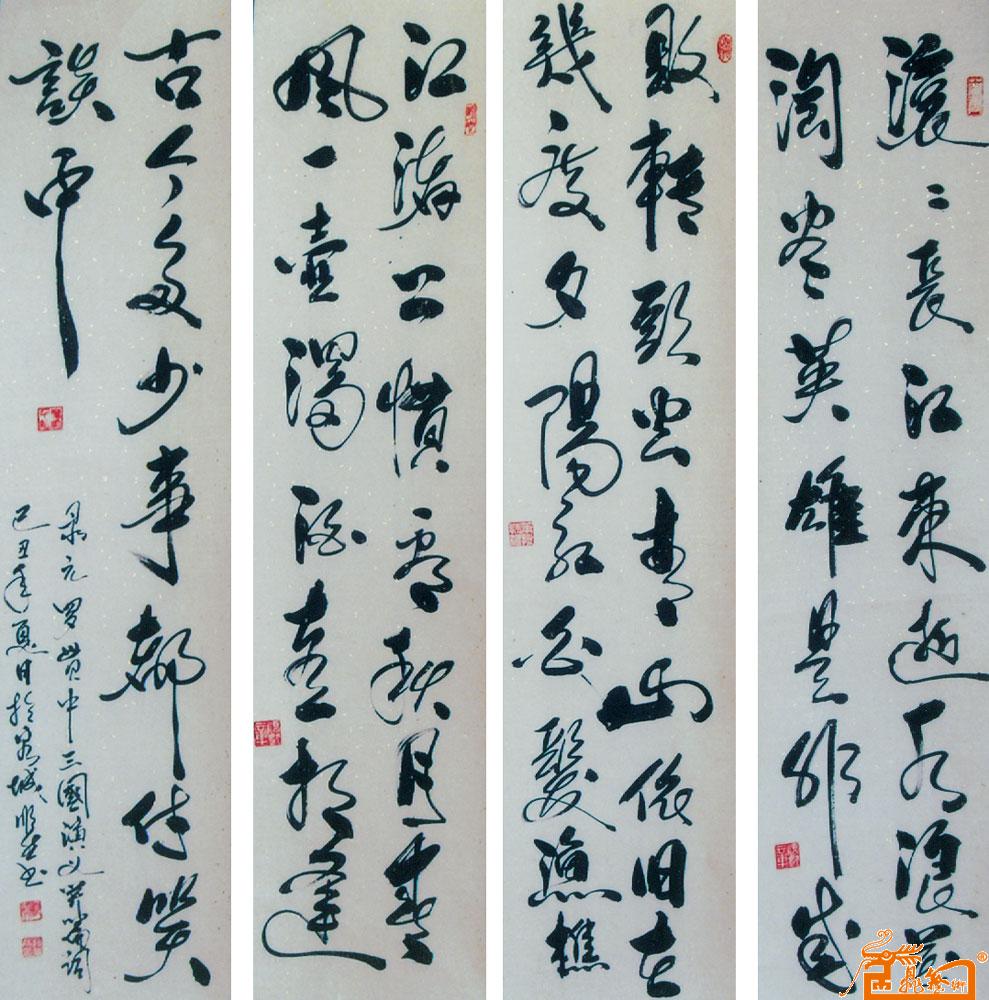 滾〻長江東逝水浪花
淘尽英雄是非成
敗轉頭空青山依旧在
幾度夕陽红白髮漁樵
江渚上慣看秋月春
風一壺濁酒喜相逢
古今多少事都付笑
談中
录元罗贯中三國演义開篇词
己丑年夏日於城书